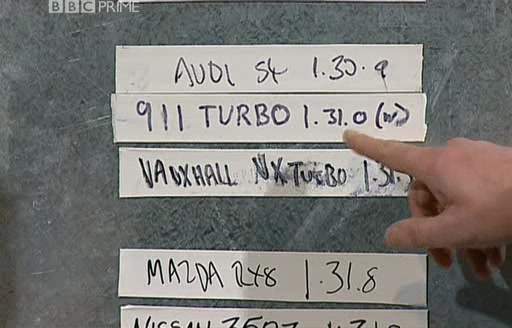 BBC PRIME
AUDI S4 1.30.9
911 TURBO 1.31.0 (W)
VAUXHALL VX TURBO 1.31.
MAZDA RX8 1.31.8
NISSAN 350Z